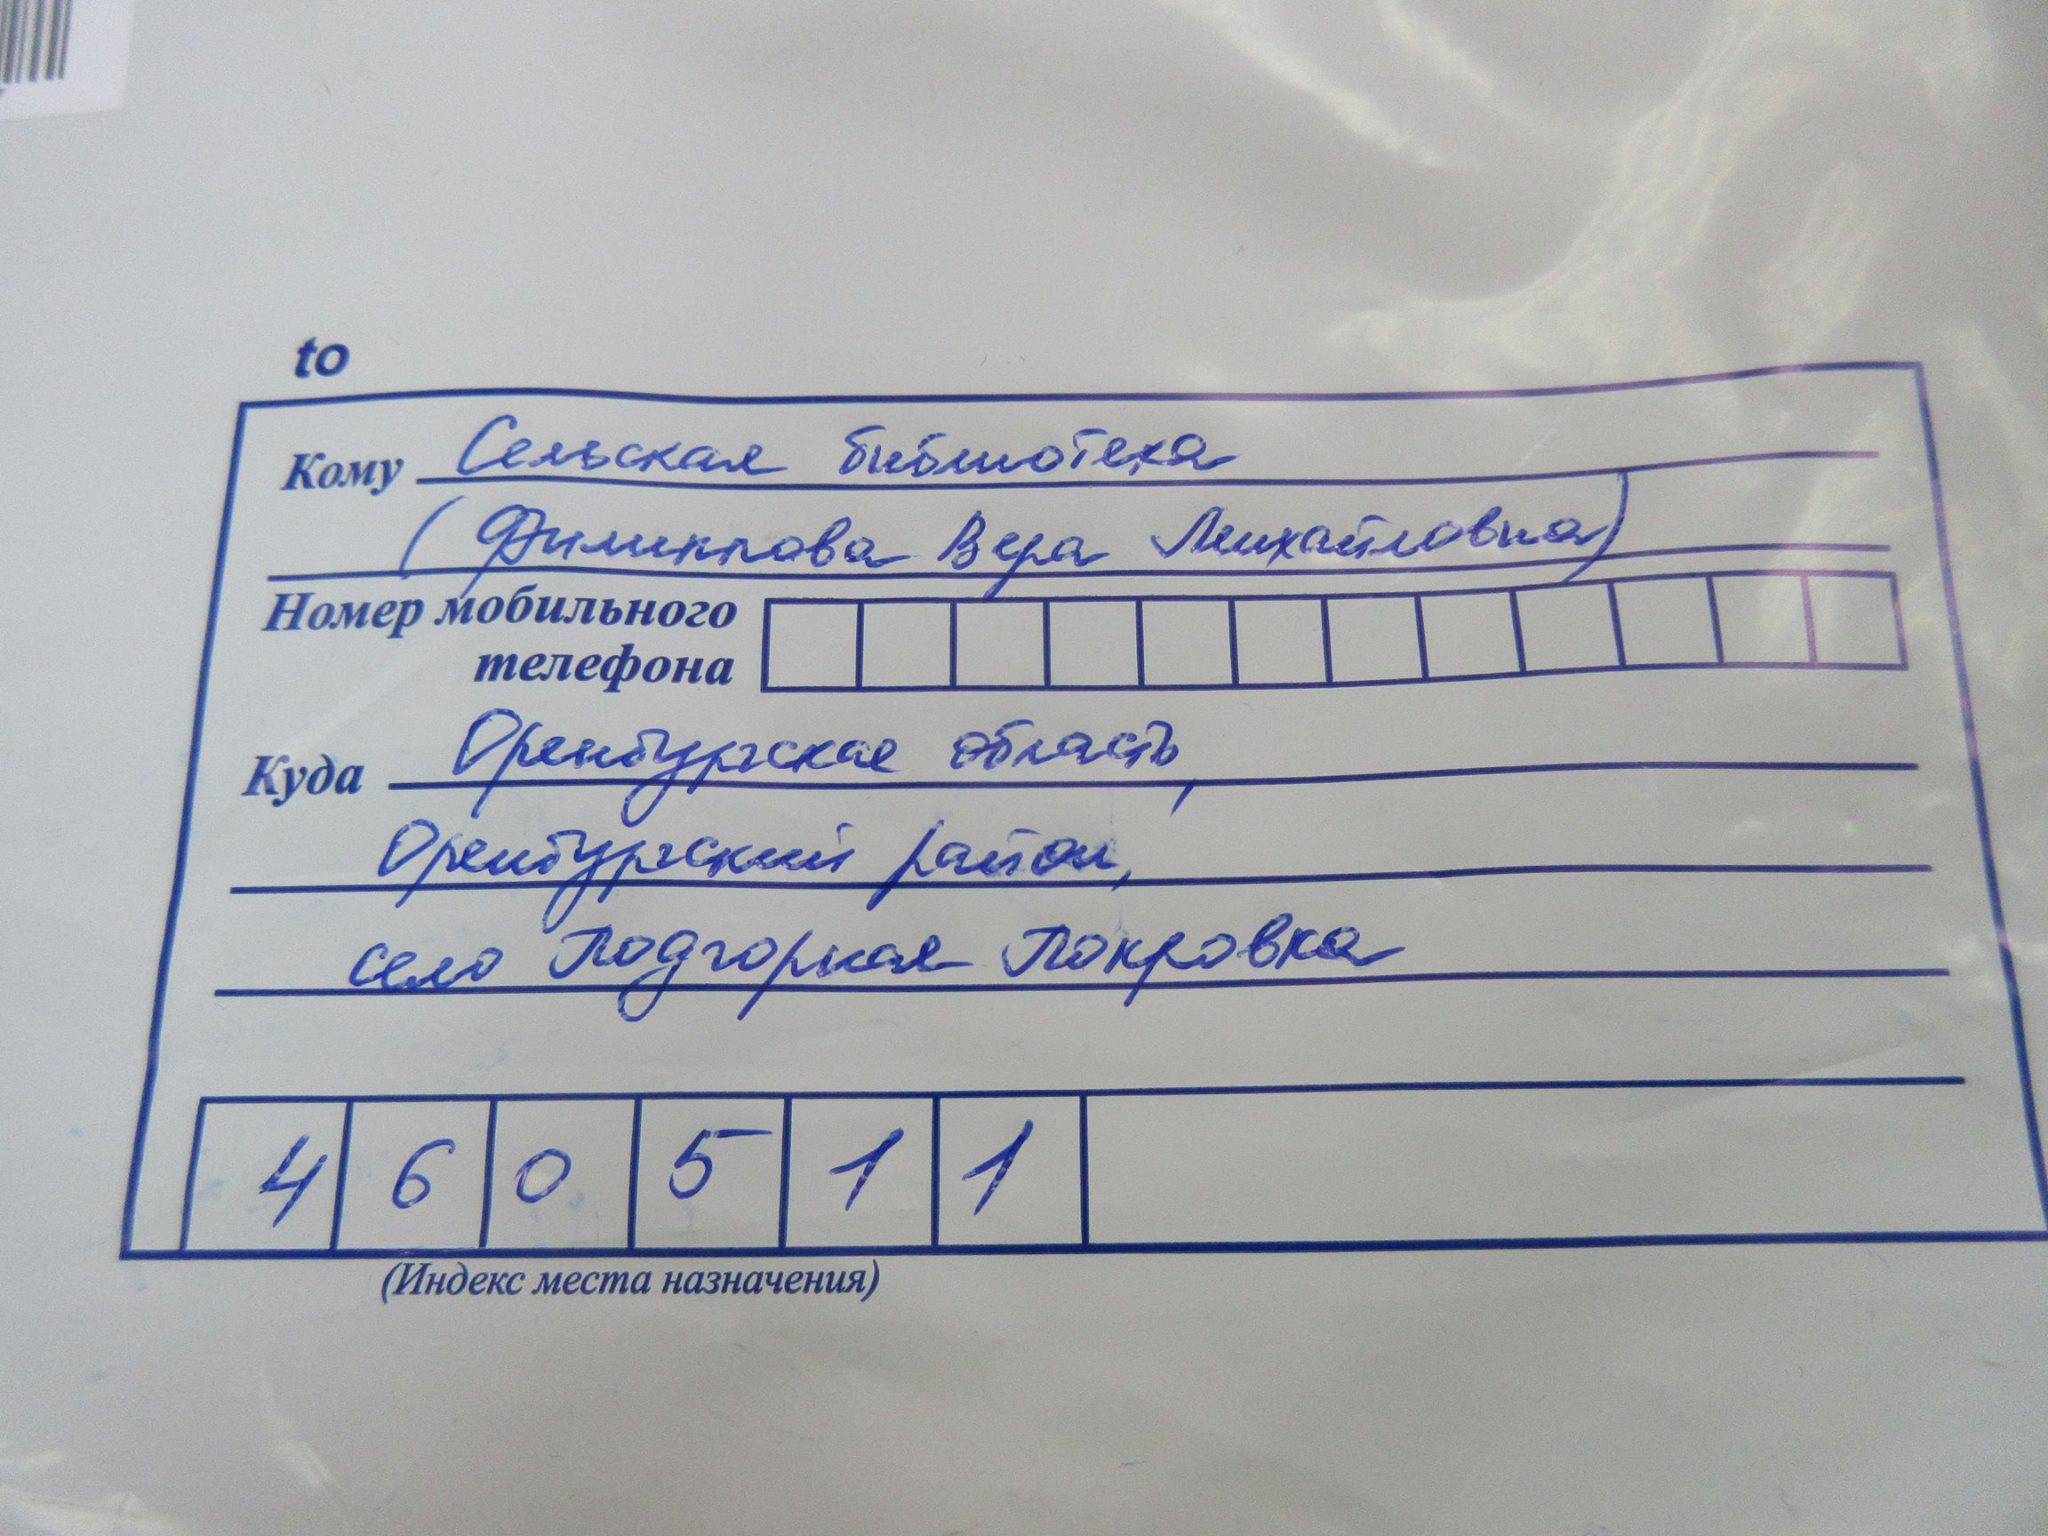 to
Кому Сельская библиотека
(Филиппова Вера Михайловна)
Номер мобильного
телефона
Куда Оренбургская область,
Оренбургский район,
село Подгорная Покровка
460511
(Индекс места назначения)